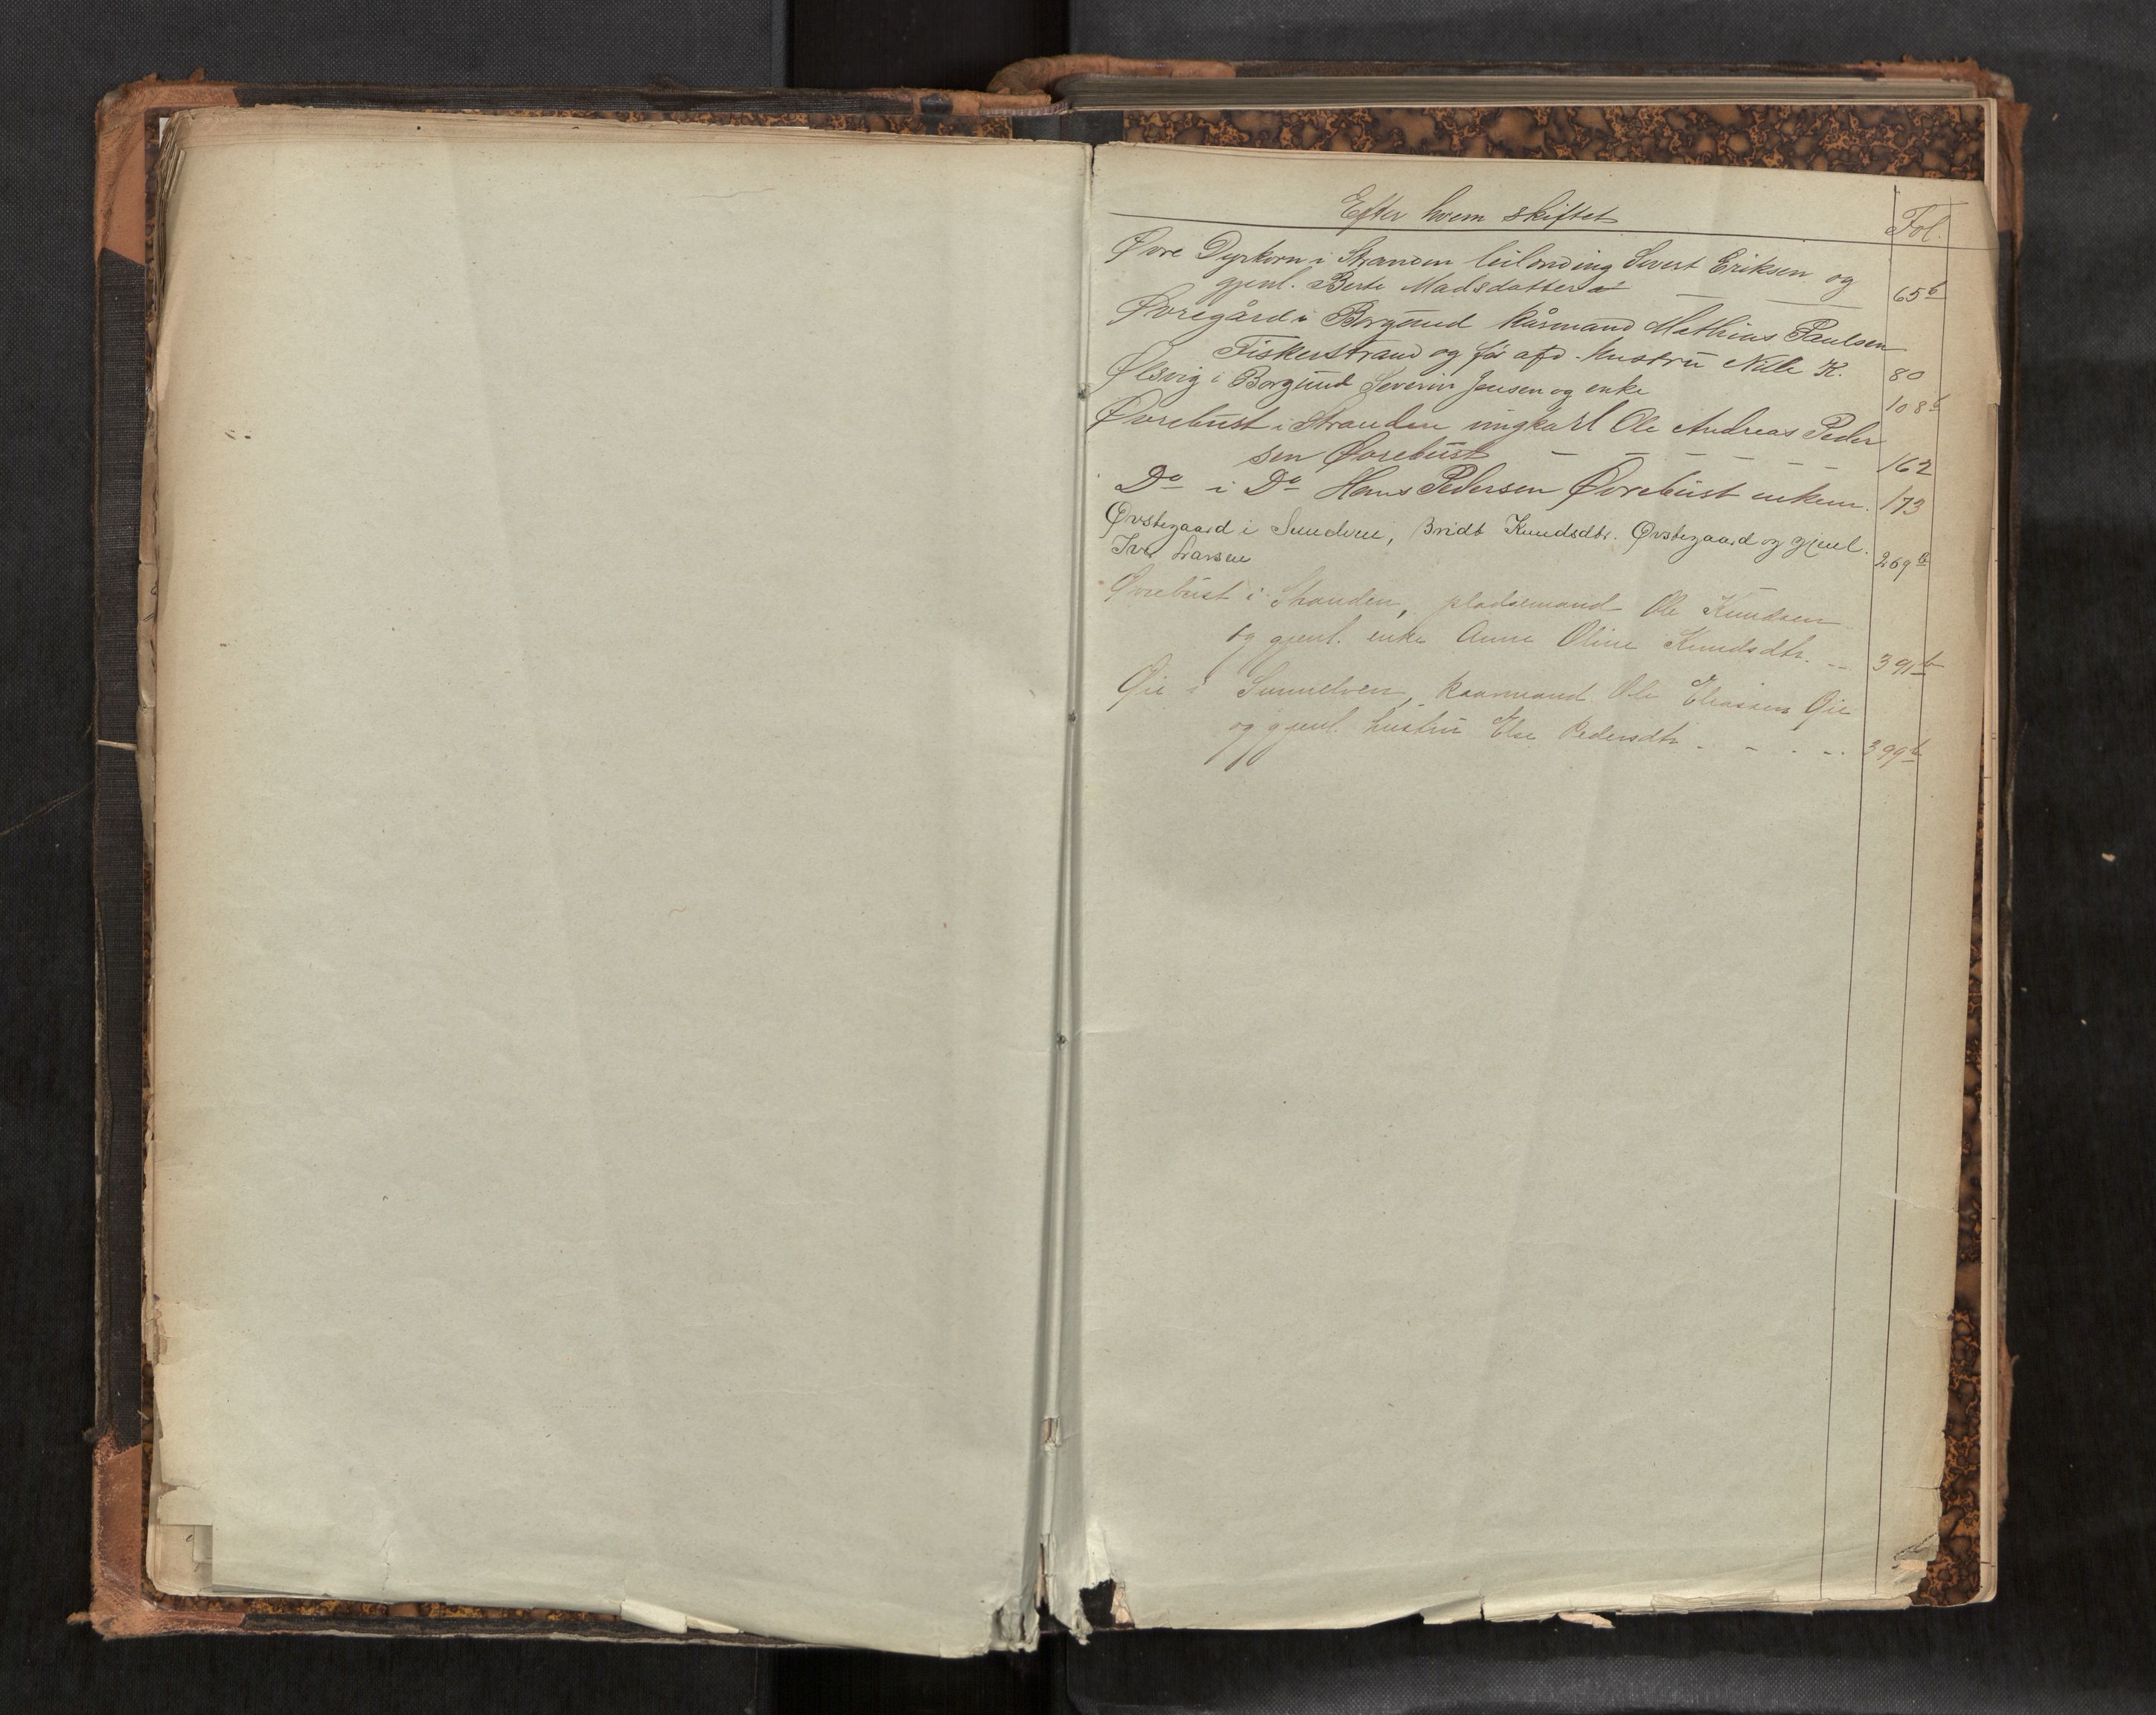 Efter hvem skiftet Fol.
Øvre Dyrkorn i Stranden leilending Sivert Eriksen og
gjenl. Berte Madsdatter 65b
Øvregård i Borgund kårmand Mathias Paulsen
Fiskerstrand og før afd. hustru Nille K. 80
Ølsvig i Borgund Severin Jensen og enke 108b
Øvrebust i Stranden ungkarl Ole Andreas Peder
sen Øvrebust — — — — — — 162
Do i Do Hans Pedersen Øvrebust enkem. 173
Øvstegaard i Sundven, Bridt Knudsdtr. Øvstegaard og gjenl.
Iver Larsen 269b
Øvrebust i Stranden, pladsemand Ole Knudsen
og gjenl. enke Anne Oline Knudsdtr. -- 391b
Øie i Sunnelven, kaarmand Ole Eliassen Øie
og gjenl. hustru Else Pedersdtr - - - -- 399b